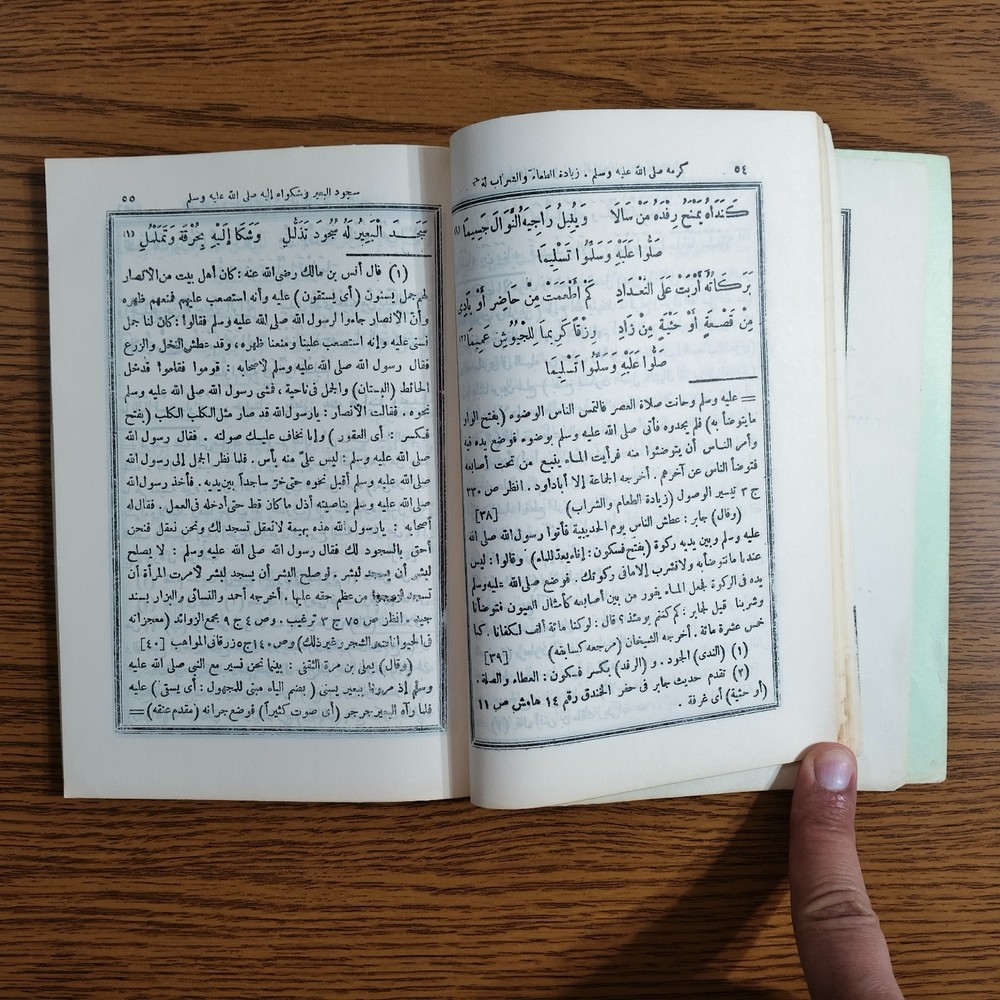 ٥٤ كرمه صلى الله عليه وسلم . زيادة الطعام والشراب له
كَنَدَاهُ يَمْنَحُ رِفْدَهُ مَنْ سَالَا وَيُنِيلُ رَاجِيهِ النَّوَالَ جَسِيمَا (١)
صَلُّوا عَلَيْهِ وَسَلِّمُوا تَسْلِيمَا
بَرَكَاتُهُ أَرْبَتْ عَلَى التَّعْدَادِ كَمْ أَطْعَمَتْ مِنْ حَاضِرٍ أَوْ بَادِى
مِنْ قَصْعَةٍ أَوْ حَثْيَةٍ مِنْ زَادِ وِزْقًا كَرِيمًا لِلْجُيُوشِ عَمِيمَا (٢)
صَلُّوا عَلَيْهِ وَسَلِّمُوا تَسْلِيمَا
= عليه وسلم وحانت صلاة العصر فالتمس الناس الوضوء (بفتح الواو
مايتوضأ به) فلم يجدوه فأتى صلى الله عليه وسلم بوضوء فوضع يده فيه
وأمر الناس أن يتوضئوا منه فرأيت الماء ينبع من تحت أصابعه
فتوضأ الناس عن آخرهم . أخرجه الجماعة إلا أباداود . انظر ص ٣٣٠
ج ٣ تيسير الوصول (زيادة الطعام والشراب) [٣٨]
(وقال) جابر : عطش الناس يوم الحديبية فأتوا رسول الله صلى الله
عليه وسلم وبين يديه ركوة (بفتح فسكون : إناء يعد للماء) وقالوا : ليس
عندنا ما نتوضأ به ولا نشرب إلا ما فى ركوتك . فوضع صلى الله عليه وسلم
يده فى الركوة لجعل الماء يفور من بين أصابعه كأمثال العيون فتوضأنا
وشربنا قيل لجابر : كم كنتم يومئذ ؟ قال : لوكنا مائة ألف لكفانا . كنا
خمس عشرة مائة . أخرجه الشيخان (مرجعه كسابقه) [٣٩]
(١) (الندى) الجود . و (الرفد) بكسر فسكون : العطاء والصلة .
(٢) تقدم حديث جابر فى حفر الخندق رقم ١٤ هامش ص ١١
(أو حثية) أى غرفة .
سجود البعير وشكواه إليه صلى الله عليه وسلم ٥٥
سَجَدَ الْبَعِيرُ لَهُ سُجُودَ تَذَلُّلِ وَشَكَا إِلَيْهِ بِحُرْقَةٍ وَتَمَلْمُلِ (١)
(١) قال أنس بن مالك رضى الله عنه : كان أهل بيت من الأنصار
لهم جمل يسنون ( أى يستقون ) عليه وأنه استصعب عليهم فمنعهم ظهره
وأن الأنصار جاءوا لرسول الله صلى الله عليه وسلم فقالوا : كان لنا جمل
نسنى عليه وإنه استصعب علينا ومنعنا ظهره ، وقد عطش النخل والزرع
فقال رسول الله صلى الله عليه وسلم لأصحابه : قوموا فقاموا فدخل
الحائط (البستان) والجمل فى ناحية ، فمشى رسول الله صلى الله عليه وسلم
نحوه . فقالت الأنصار : يارسول الله قد صار مثل الكلب الكلب (بفتح
فكسر : أى العقور ) وإنا نخاف عليك صولته . فقال رسول الله
صلى الله عليه وسلم : ليس علىّ منه بأس . فلما نظر الجمل إلى رسول الله
صلى الله عليه وسلم أقبل نحوه حتى خر ساجداً بين يديه . فأخذ رسول الله
صلى الله عليه وسلم بناصيته أذل ما كان قط حتى أدخله فى العمل . فقال له
أصحابه : يارسول الله هذه بهيمة لا تعقل تسجد لك ونحن نعقل فنحن
أحق بالسجود لك فقال رسول الله صلى الله عليه وسلم : لا يصلح
لبشر أن يسجد لبشر . لو صلح لبشر أن يسجد لبشر لأمرت المرأة أن
تسجد لزوجها من عظم حقه عليها . أخرجه أحمد والنسائى والبزار بسند
جيد . انظر ص ٧٥ ج ٣ ترغيب . وص ٤ ج ٩ مجمع الزوائد (معجزاته
فى الحيوانات والشجر وغير ذلك) وص ١٤٠ ج ٥ زرقانى المواهب [٤٠]
(وقال) يعلى بن مرة الثقفى : بينما نحن نسير مع النبى صلى الله عليه
وسلم إذ مررنا ببعير يسنى ( بضم الياء مبنى للمجهول : أى يستقى ) عليه
فلما رآه البعير جرجر (أى صوت كثيراً) فوضع جرانه (مقدم عنقه) =